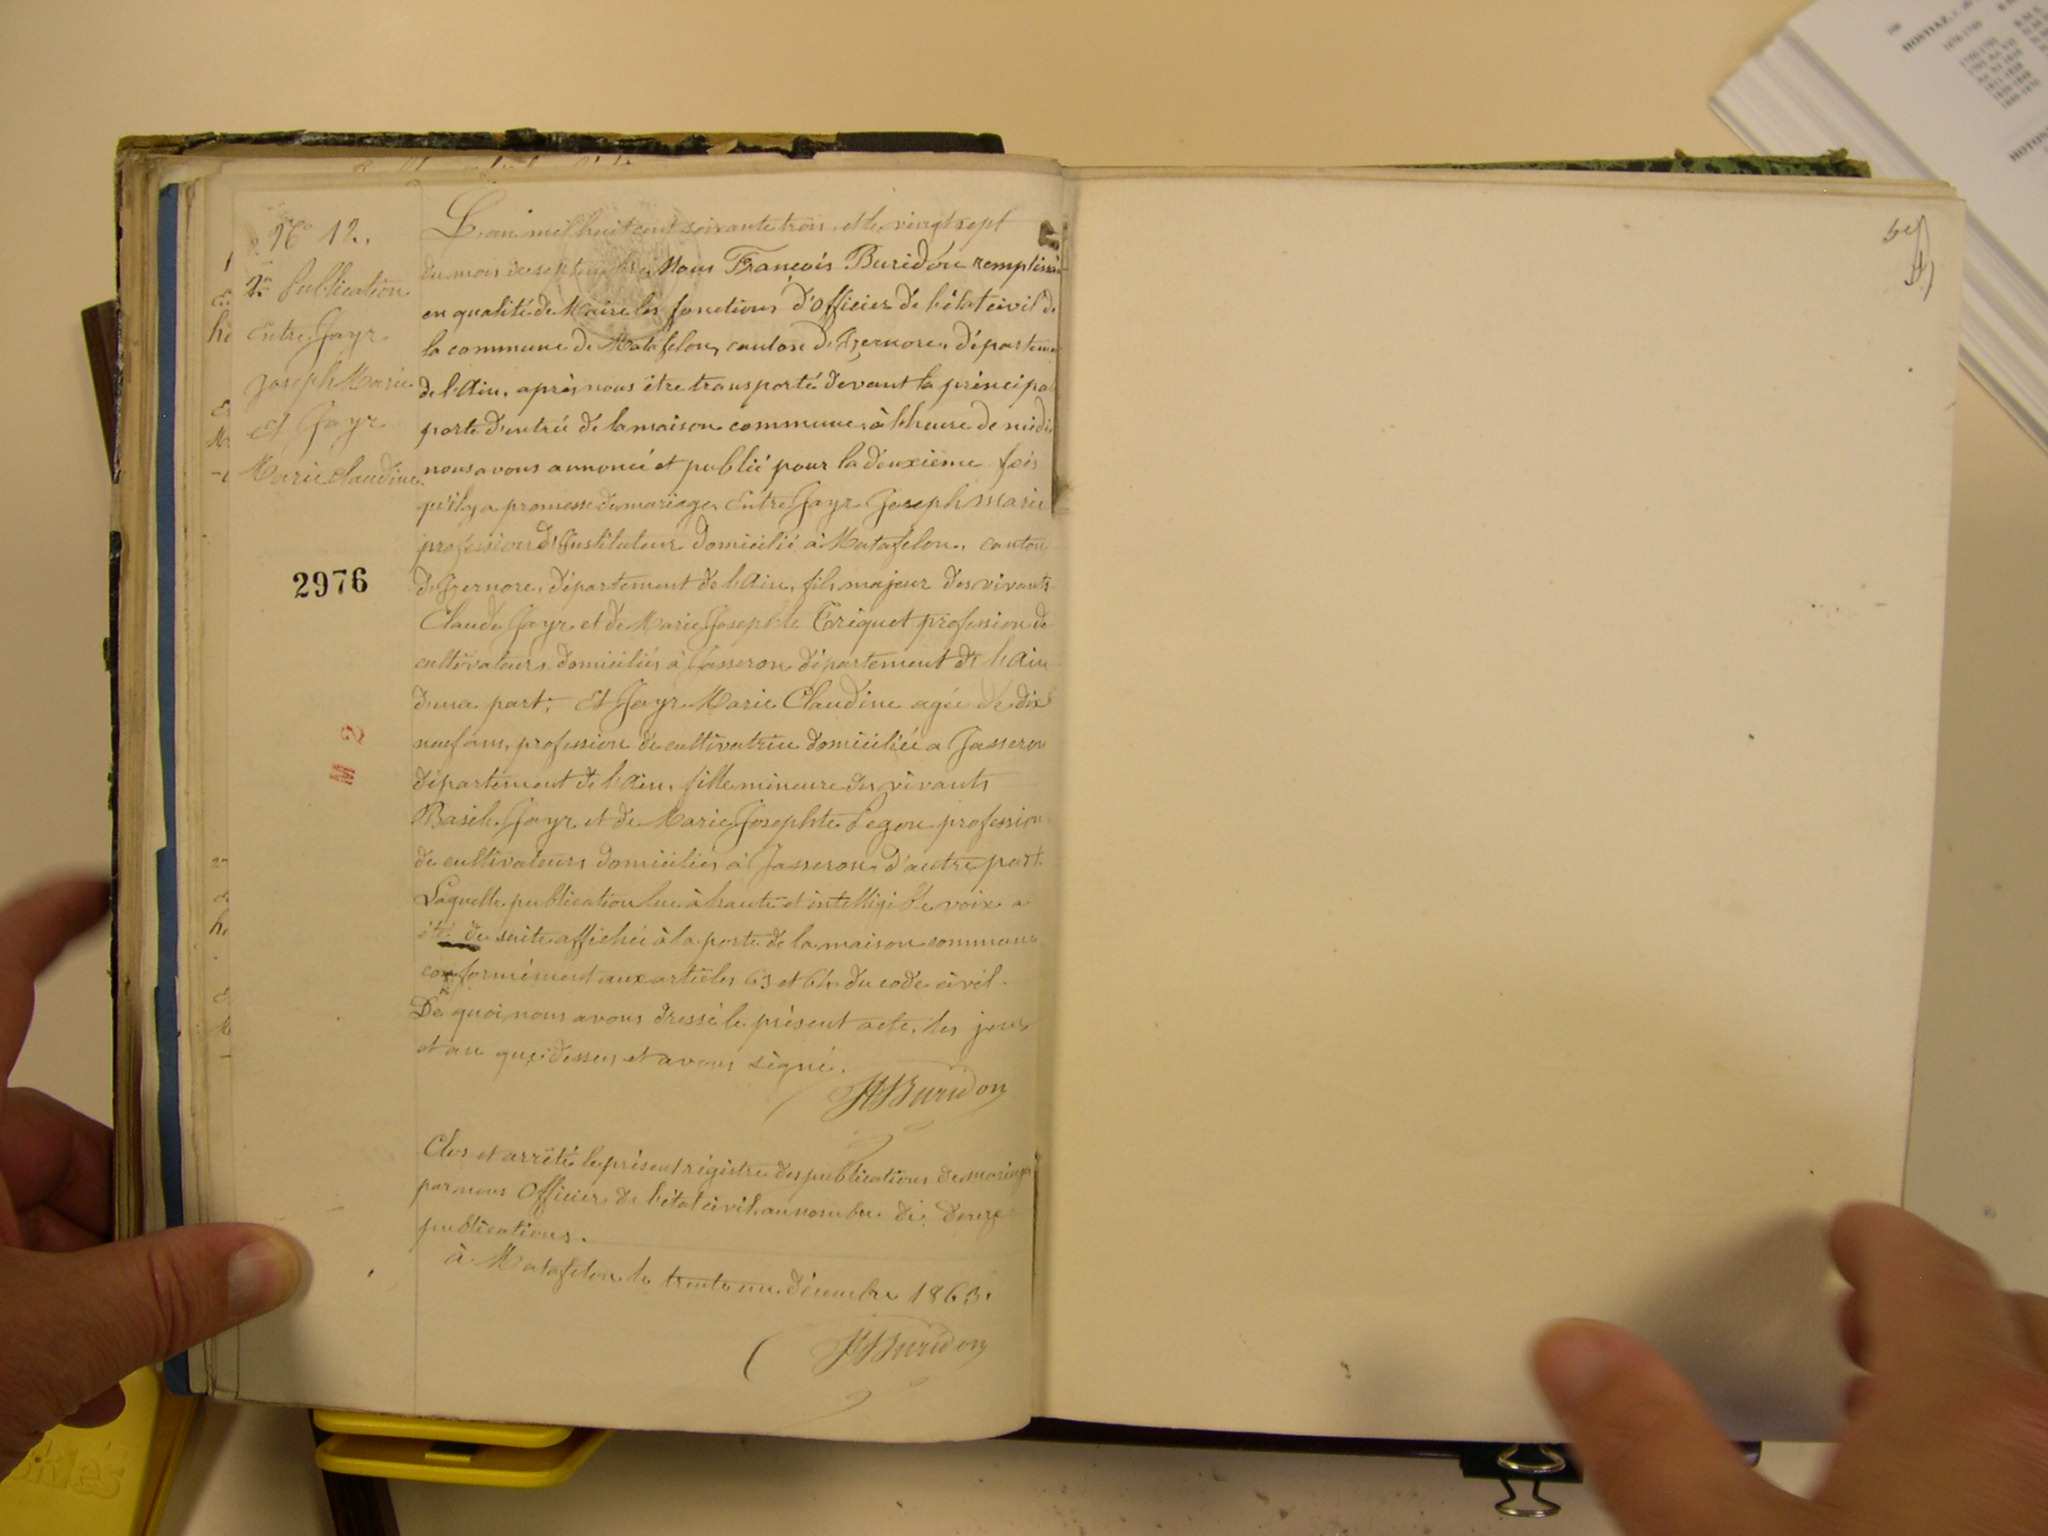 No 12.
2e Publication
Entre Jayr
Joseph Marie
Et Jayr
Marie Claudine
2976
L'an mil huit cent soixante trois et le vingt sept
du mois de septembre, Nous François Buridon remplissan
en qualité de Maire les fonctions d'officier de l'état civil de
la commune de Matafelon, canton d'Izernore, départeme
de l'Ain, après nous être transporté devant la principa
porte d'entrée de la maison commune, à l'heure de midi
nous avons annoncé et publié pour la deuxième fois
qu'il y a promesse de mariage, Entre Jayr Joseph Marie
profession d'Instituteur domicilié à Matafelon, canton
d'Izernore, département de l'Ain, fils majeur des vivants
Claude Jayr et de Marie Josephte Triquet profession de
cultivateurs domiciliés à Jasseron département de l'Ain
d'une part; Et Jayr Marie Claudine agée de dix
neuf ans, profession de cultivatrice domiciliée a Jasseron
département de l'Ain, fille mineure des vivants
Basile Jayr et de Marie Josephte Legou profession
de cultivateurs domiciliés à Jasseron, d'autre part.
Laquelle publication lue à haute et intelligible voix a
été de suite affichée à la porte de la maison commune
conformément aux articles 63 et 64 du code civil.
De quoi nous avons dressé le présent acte, les jour
et an que dessus et avons signé.
Buridon
Clos et arrêté le présent régistre des publications de mariage
par nous Officier de l'état civil au nombre de douze
publications.
à Matafelon le trente un décembre 1863.
Buridon
HOSTIAZ,
HOTON